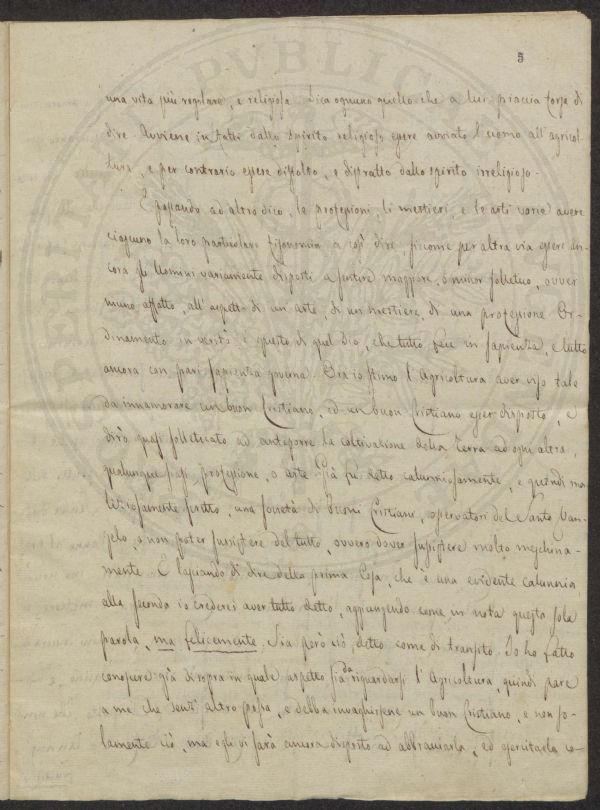 5
una vita più regolare, e religiosa. Dica ognuno quello che a lui piaccia forse di
dire. Avviene in fatti dallo spirito religioso essere avviato l'uomo all'agricol-
tura, e per contrario essere distolto, e distratto dallo spirito irreligioso.
E passando ad altro dico, le professioni, li mestieri, e le arti varie avere
ciascuno la loro particolare fisonomia a così dire, siccome per altra via essere an-
cora gli Uomini variamente disposti a sentire maggiore, o minor solletico, ovver
niuno affatto, all'aspetto di un'arte, di un mestiere, di una professione. Or-
dinamento in verità è questo di quel Dio, che tutto fece in sapienza, e tutto
ancora con pari sapienza governa. Ora io stimo l'Agricoltura aver viso tale
da innamorare un buon Cristiano, ed un buon Cristiano esser disposto, e
dirò quasi solleticato ad anteporre la coltivazione della Terra ad ogni altra,
qualunque siasi professione, o arte. Già fu detto calunniosamente, e quindi ma-
liziosamente scritto, una società di Buoni Cristiani, osservatori del Santo Van-
gelo, o non poter sussistere del tutto, ovvero dover sussistere molto meschina-
mente. E lasciando di dire della prima Cosa, che è una evidente calunnia,
alla seconda io crederei aver tutto detto, aggiungendo come in nota questa sola
parola, ma felicemente. Sia però ciò detto come di transito. Io ho fatto
conoscere già di sopra in quale aspetto sia da riguardarsi l'Agricoltura, quindi pare
a me che senz'altro possa, e debba invaghirsene un buon Cristiano, e non so-
lamente ciò, ma egli vi sarà ancora disposto ad abbracciarla, ed esercitarla co-